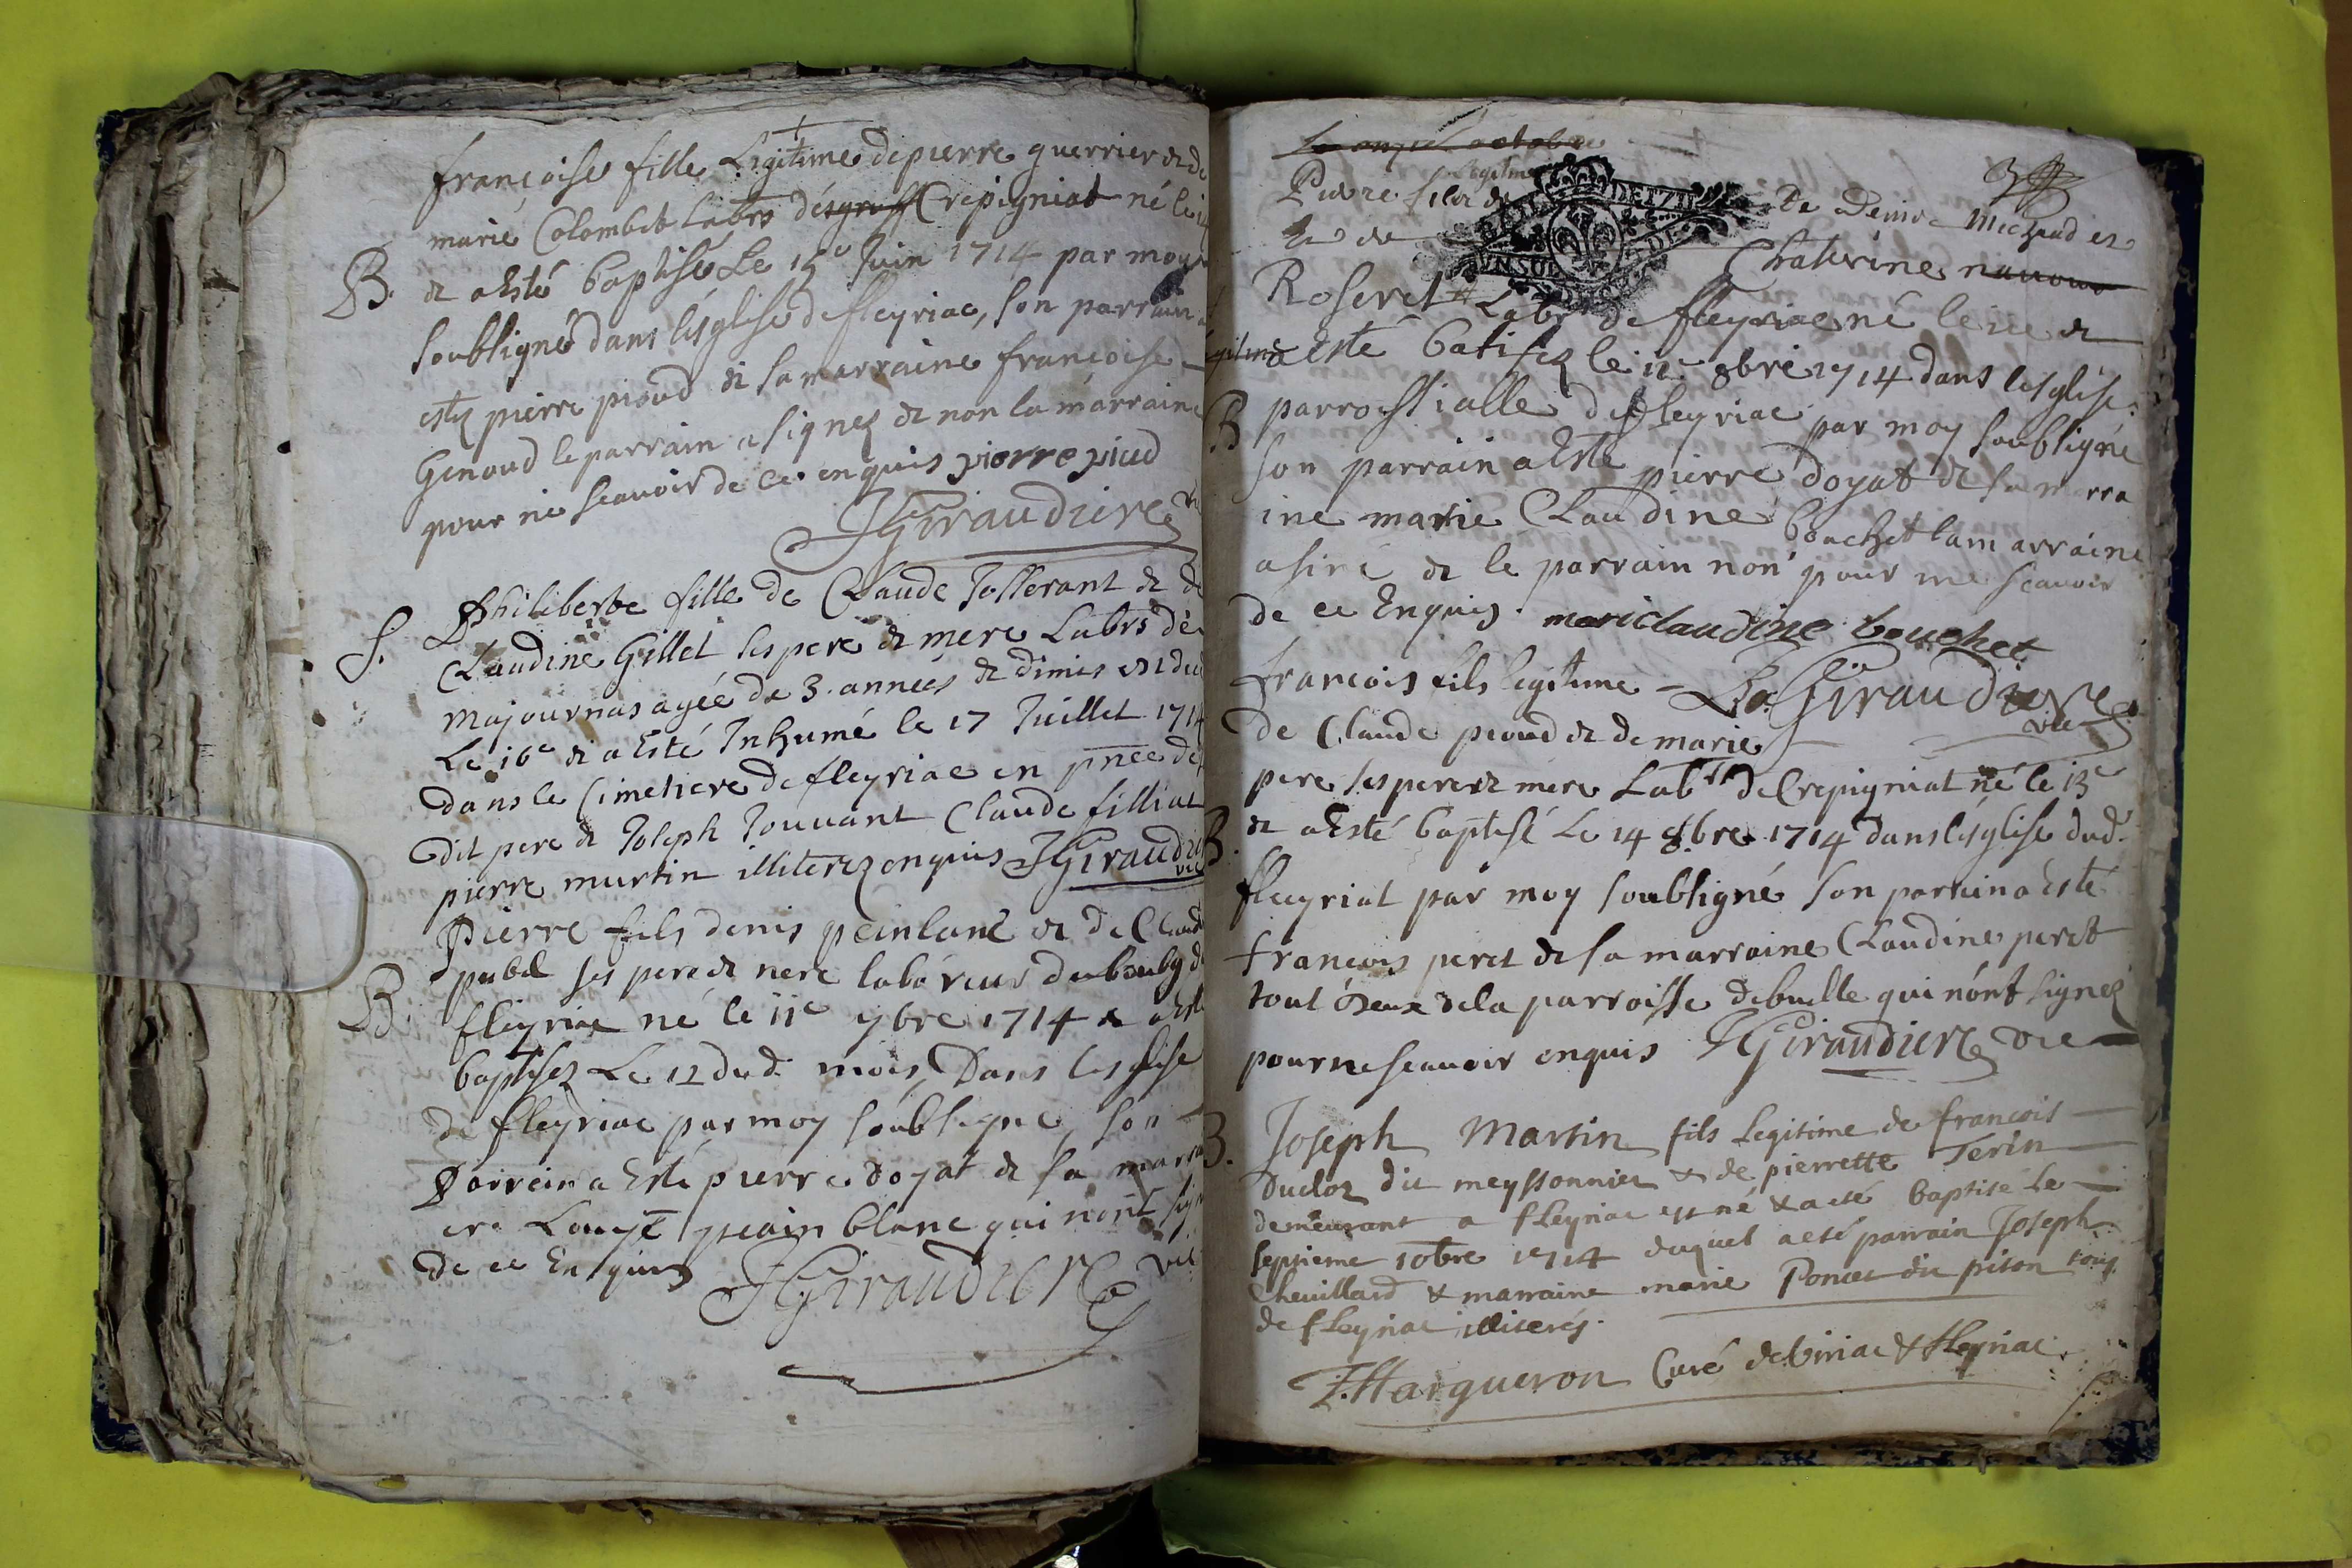 françoise fille Legitime de pierre guerrier et de
marie Colombet Labrs de Crepigniat né le
B. et a esté baptisé Le 15e Juin 1714 par moy
soubsigné dans lésglise de fleyriac, son parrain a
estez pierre pioud et sa marraine françoise
Genoud le parrain a signez et non la marraine
pour ne scauoir de ce enquis pierre piud
JGiraudiere
S. Philiberte fille de Claude Jollerant et de
Claudine Gillet ses pere et mere Labrs de
majournas agée de 3 années et dimis
Le 16e et a Esté Inhumé le 17 Juillet 1714
dans le Cimetiere de fleyriac en pnce de
dit pere et Joseph Jouuant Claude filliat
pierre martin illiterez enquis JGiraudiere
vic
Pierre fils denis peinlanc et de Claud
pubel ses pere et mere laboreus du bourg de
B. fleyriac né le 11e 9bre 1714 et a esté
baptisez Le 12 dud. mois Dans lesglise
de fleyriac par moy soubsigne son
parrein a Esté pierre doyat et sa marra
ere Louyse peain blanc qui nónt sig
de ce Enquis JGiraudiere vic
Le onze octobre
legitime
Pierre fils de De Denise Michaud et
Et de Chaterine
Roserel Labr de fleyriac né le 11e et
a esté batisez le 12e 8bre 1714 dans lésglise
B parrossialle de fleyriac par moy soubsigné
son parrain a Esté pierre doyat et sa marra
ine marie Claudine bouchet la marraine
a siné et le parrain non pour ne scauoir
de ce Enquis. mariclaudine bouchet
francois fils legitime - JGiraudiere
vic
de Claude pioud et de marie
pere ses pere et mere Labrs de Crepigniat né le 13e
B. et a Esté baptisé Le 14 8bre 1714 dans lésglise dud.
fleyriat par moy soubsigné son parrain a Esté
francois peret et sa marraine Claudine peret
tout deux de la parroisse de buelle qui nónt signez
pour ne scauoir enquis JGiraudiere vic
B. Joseph Martin fils Legitime de francois
Duclos dit meyssonnier & de pierrette Terin
demeurant a fleyriac est né & a eté baptisé Le
septieme 10bre 1714 duquel a eté parrain Joseph
Cheuillard & marraine marie Poncet dit piton tous
de fleyriac illiterés.
J. Margueron Curé de Viriac & fleyriac.